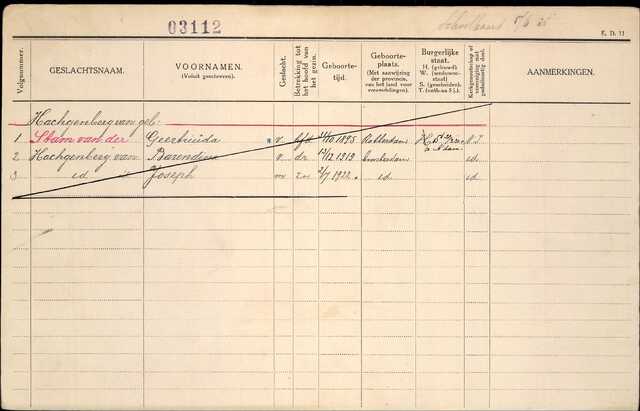 03112
5/6 25
K. D. 11
Volgnummer.
GESLACHTSNAAM.
VOORNAMEN.
(Voluit geschreven).
Geslacht.
Betrekking tot het hoofd van het gezin.
Geboorte-tijd.
Geboorte-plaats.
(Met aanwijzing der provincie, van het land voor vreemdelingen).
Burgerlijke staat.
H. (gehuwd).
W. (weduwen-staat)
S. (gescheiden)
T. (onth. aan S j.).
AANMERKINGEN.
Hachgenberg van geb.
1 Stam van der Geertruida v. hfd 1895 Rotterdam H. N.I
2 Hachgenberg van Barendina v. dr 13/12 1919 Amsterdam id.
3 id id Joseph m zn 2/7 1922 id. id.